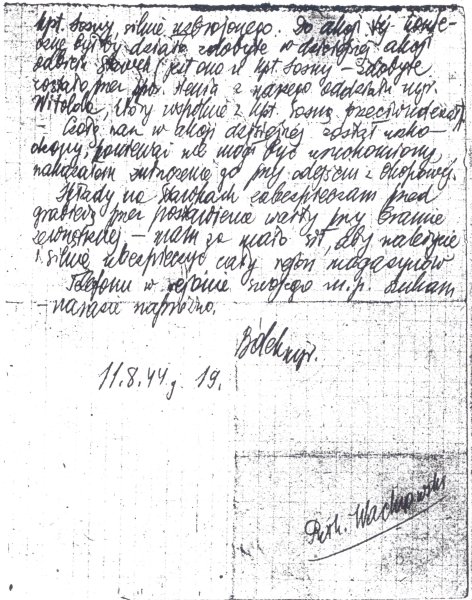 kpt. Sosny, silnie uzbrojonego. Do akcji tej
byłoby działo zdobyte w dzisiejszej akcji
jest ono u kpt. Sosny – Zdobyte
zostało przez z naszego oddziału mjr.
Witolda, który wspólnie z kpt. Sosną
– Czołg nasz w akcji dzisiejszej został
ponieważ nie mógł być uruchomiony
nakazałem zniszczenie go przy odejściu z
Składy na Stawkach zabezpieczam przed
grabieżą przez postawienie warty przy bramie
– mam za mało sił, aby należycie
i silnie ubezpieczyć cały rejon magazynów
Telefonu w rejonie swojego m.p. szukam
– narazie napróżno.
Bolek mjr.
11.8.44 g. 19.
Wachnowski